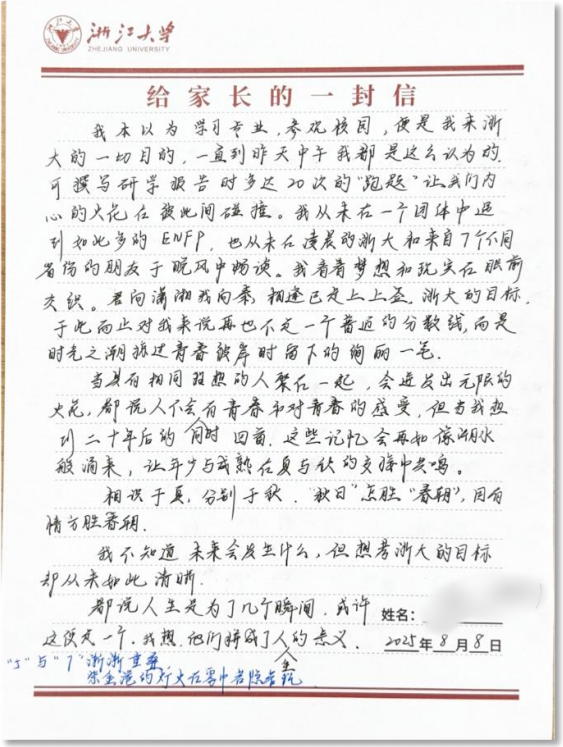 浙江大学
ZHEJIANG UNIVERSITY
给家长的一封信
我本以为学习专业,参观校园,便是我来浙
大的一切目的,一直到昨天中午我都是这么认为的.
可撰写研学报告时多达20次的“跑题”让我们内
心的火花在彼此间碰撞。我从未在一个团体中遇
到如此多的ENFP,也从未在凌晨的浙大和来自7个不同
省份的朋友于晚风中畅谈。我看着梦想和现实在眼前
交织。君向潇湘我向秦,相逢已是上上签.浙大的目标,
于此而止对我来说再也不是一个普通的分数线,而是
时光之潮掠过青春彼岸时留下的绚丽一笔.
当具有相同理想的人聚在一起,会迸发出无限的
火花,都说人不会有青春和对青春的感受,但当我想
到二十年后的同时回首,这些记忆会再如像潮水
般涌来,让年少与成熟在夏与秋的交接中共鸣。
相识于夏,分别于秋.“秋日”怎胜“春朝”,因有
情方胜春朝.
我不知道未来会发生什么,但想考浙大的目标
却从未如此清晰.
都说人生是为了几个瞬间.或许
这便是一个.我想.他们拼成了人的意义.
全
姓名:
2025年8月8日
与“7”浙浙重奏
的灯火在雾中